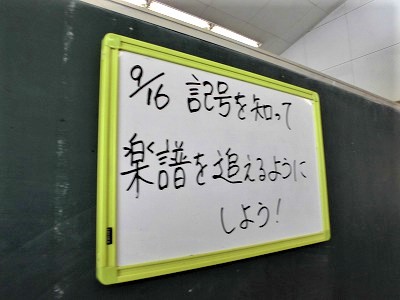 9/16 記号を知って
楽譜を追えるように
しよう!